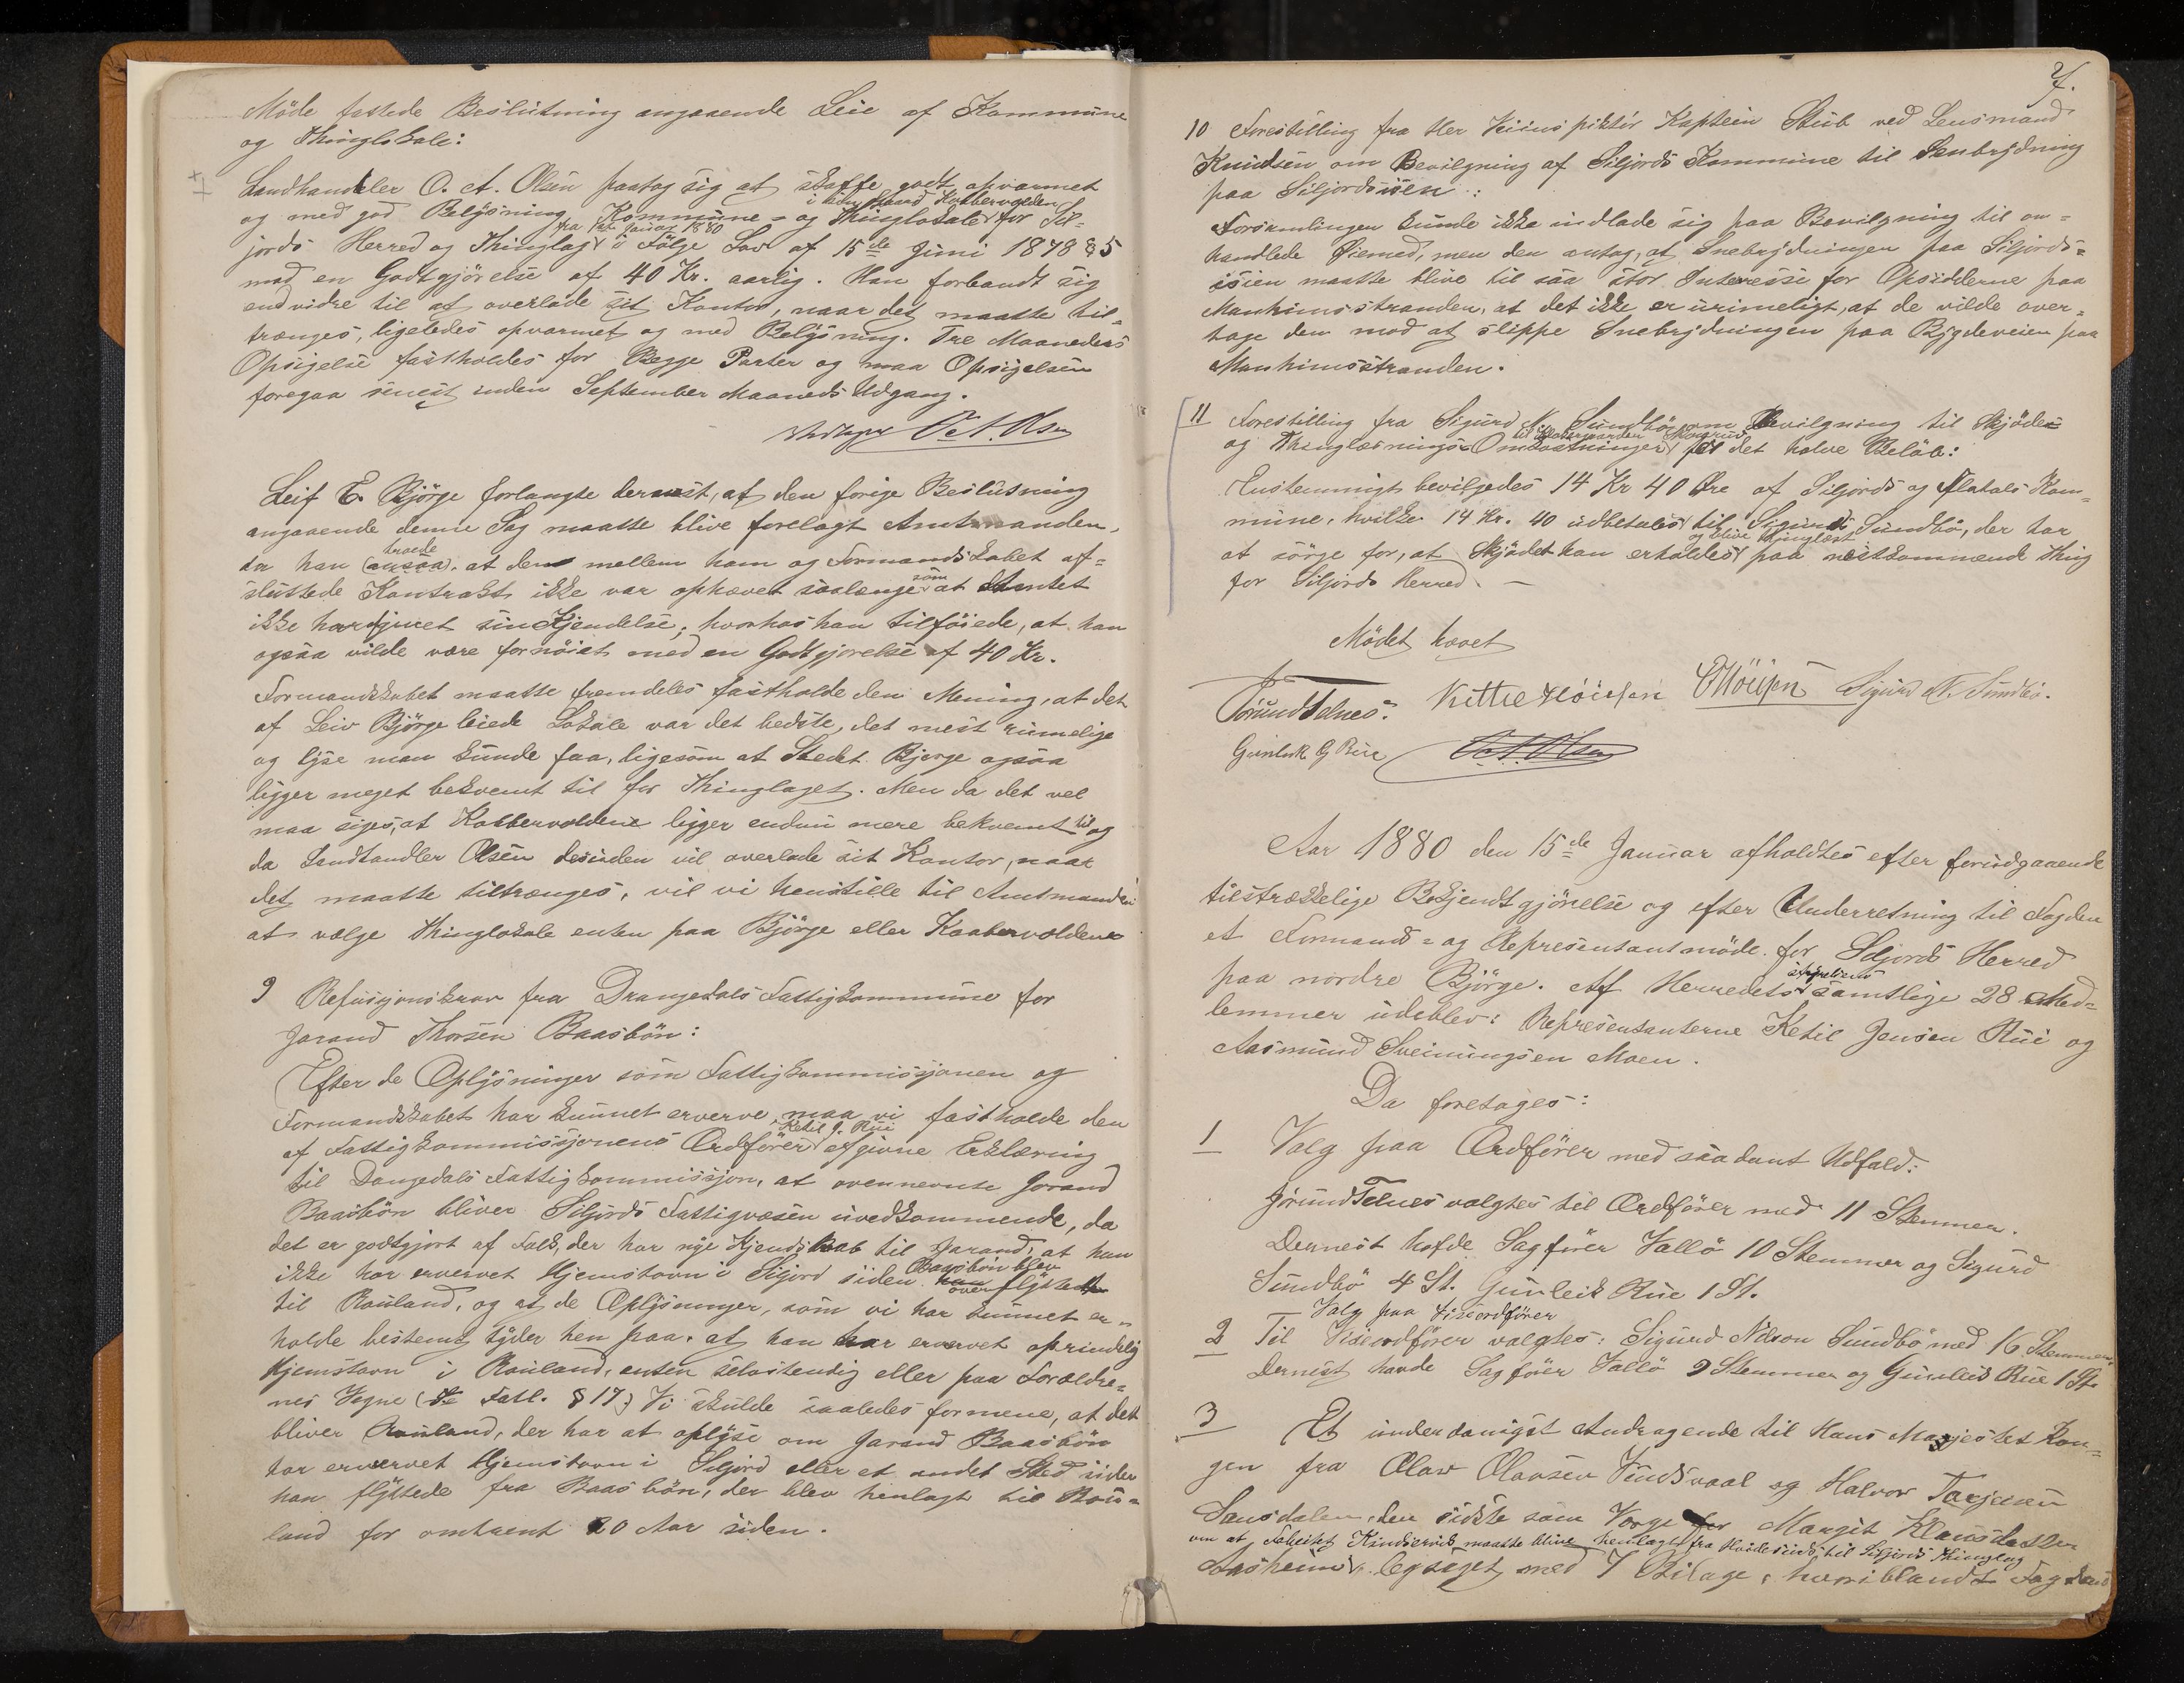 Möde fattede Beslutning angaaende Leie af Kommune
og Thinglokale:
Landhandler O. A. Olsen paatog sig at skaffe godt opvarmet
i sin Gaard Kobbervolden
og med god Belysning Kommune- og Thinglokale for Sil-
fra 1ste Januar 1880
jords Herred og Thinglag i Følge Lov af 15de Juni 1878 § 5
mod en Godtgjörelse af 40 Kr. aarlig. Han forbandt sig
endvidre til at overlade sit Kontor, naar det maatte til-
trænges, ligeledes opvarmet og med Belysning. Tre Maaneders
Opsigelse fastholdes for Begge Parter og maa Opsigelsen
foregaa senest inden September Maaneds Udgang.
Vedtages O. A. Olsen
Leif E. Björge forlangte dernest, at den forige Beslutning
angaaende denne Sag maatte blive forelagt Amtmanden,
troede
da han ansaa, at den mellem ham og Formandskabet af-
som
sluttede Kontrakt ikke var ophævet saalænge at Amtet
ikke har givet sin Kjendelse, hvorhos han tilföiede, at han
ogsaa vilde være fornöiet med en Godtgjorelse af 40 Kr.
Formandskabet maatte fremdeles fastholde den Mening, at det
af Leiv Björge leiede Lokale var det bedste, det mest rumelige
og lyse man kunde faa, ligesom at Stedet Bjorge ogsaa
ligger meget bekvemt til for Thinglaget. Men da det vel
maa siges, at Kobbervoldene ligger endnu mere bekvemt til og
da Landhandler Olsen desuden vil overlade sit Kontor, naar
det maatte tiltrænges, vil vi henstille til Amtmanden
at vælge Thinglokale enten paa Björge eller Kaabervoldene
9 Refusjonskrav fra Drangedals Fattigkommune for
Jarand Thorsen Baasbön:
Efter de Oplysninger som Fattigkommissjonen og
Formandskabet har kunnet erverve, maa vi fastholde den
Ketil J. Rui
af Fattigkommissjonens Ordförer afgivne Erklæring
til Dangedals Fattigkommissjon, at ovennevnte Jorand
Baasbön bliver Siljords Fattigvæsen uvedkommende, da
det er godtgjort af Folk, der har nöie Kjendskab til Jarand, at han
Baasbön blev
ikke har ervervet Hjemstavn i Siljord siden han overflyttet
til Rauland, og at de Oplysninger, som vi har kunnet er-
holde bestemt tyder hen paa, at han har ervervet oprindelig
Hjemstavn i Rauland, enten selvstendig eller paa Forældre-
nes Vegne (Fattl. § 17.) Vi skulde saaledes formene, at det
bliver Rauland, der har at oplyse om Jarand Baasbön
har ervervet Hjemstavn i Siljord eller et andet Sted siden
han flyttede fra Baasbön, der blev henlagt til Rau-
land for omtrent 20 Aar siden.
7.
10 Forestilling fra Hr Veiinspiktör Kaptein Stub ved Lensmand
Knudsen om Bevilgning af Siljords Kommune til Snebrydning
paa Siljordsisen:
Forsamlingen kunde ikke indlade sig paa Bevilgning til om-
handlede Øiemed, men den antog, at Snebrydningen paa Siljords-
isen maatte blive til saa stor Interesse for Opsidderne paa
Manhimsstranden, at det ikke er urimeligt, at de vilde over-
tage den mod at slippe Snebrydningen paa Bygdeveien paa
Manhimsstranden.
11 Forestilling fra Sigurd N. Sundbö om Bevilgning til Skjöde-
og Thinglæsnings-Omkostninger for det halve Beløb:
Enstemmigt bevilgedes 14 Kr 40 Øre af Siljords og Flatdals Kom-
mune, hvilke 14 Kr. 40 udbetales til Sigurd Sundbö, der har
og blive thinglæst
at sörge for, at Skjödet kan erholdes paa nestkommende Thing
for Siljords Herred. —
Mödet hævet
Jörund Telnes. Kittil Höisen Sigurd N. Sundbö.
Gunleik G Rue O. A. Olsen
Aar 1880 den 15de Januar afholdtes efter forudgaaende
tilstrækkelige Bekjendtgjörelse og efter Underretning til Fogden
et Formands- og Representantmöde for Siljords Herred
styrelses
paa nordre Björge. Af Herredets samtlige 28 Med-
lemmer udeblev: Representanterne Ketil Jensen Rui og
Aasmund Sveinungsen Moen.
Da foretages:
1 Valg paa Ordförer med saadant Udfald:
Jörund Telnes valgtes til Ordförer med 11 Stemmer.
Dernest hafde Sagförer Vallö 10 Stemmer og Sigurd
Sundbö 4 St. Gunleik Rue 1 St.
Valg paa Viseordförer
2 Til Viseordförer valgtes: Sigurd Nilson Sundbö med 16 Stemmer.
Dernest havde Sagförer Vallö 9 Stemmer og Gunleik Rue 1 St.
3 Et underdanigst Andragende til Hans Majestet Kon-
gen fra Olav Olavsen Vindsvaal og Halvor Tarjeisen
Sansdalen, den sidste som Verge for Margit Klausdatter
om at maatte blive henlagt fra Hvideseids til Siljords Thinglag
Aasheim, ledsaget med 7 Bilage, hvoriblandt Fogdens